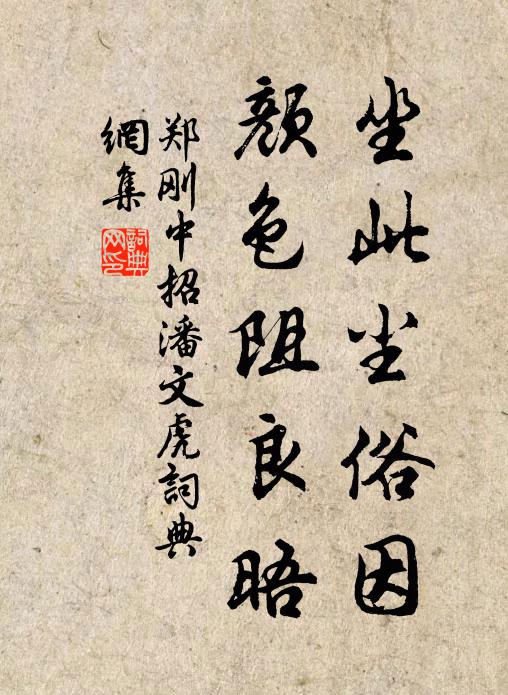 坐此尘俗因
颜色阻良晤
郑刚中招潘文虎詞典
網集
詞典网印